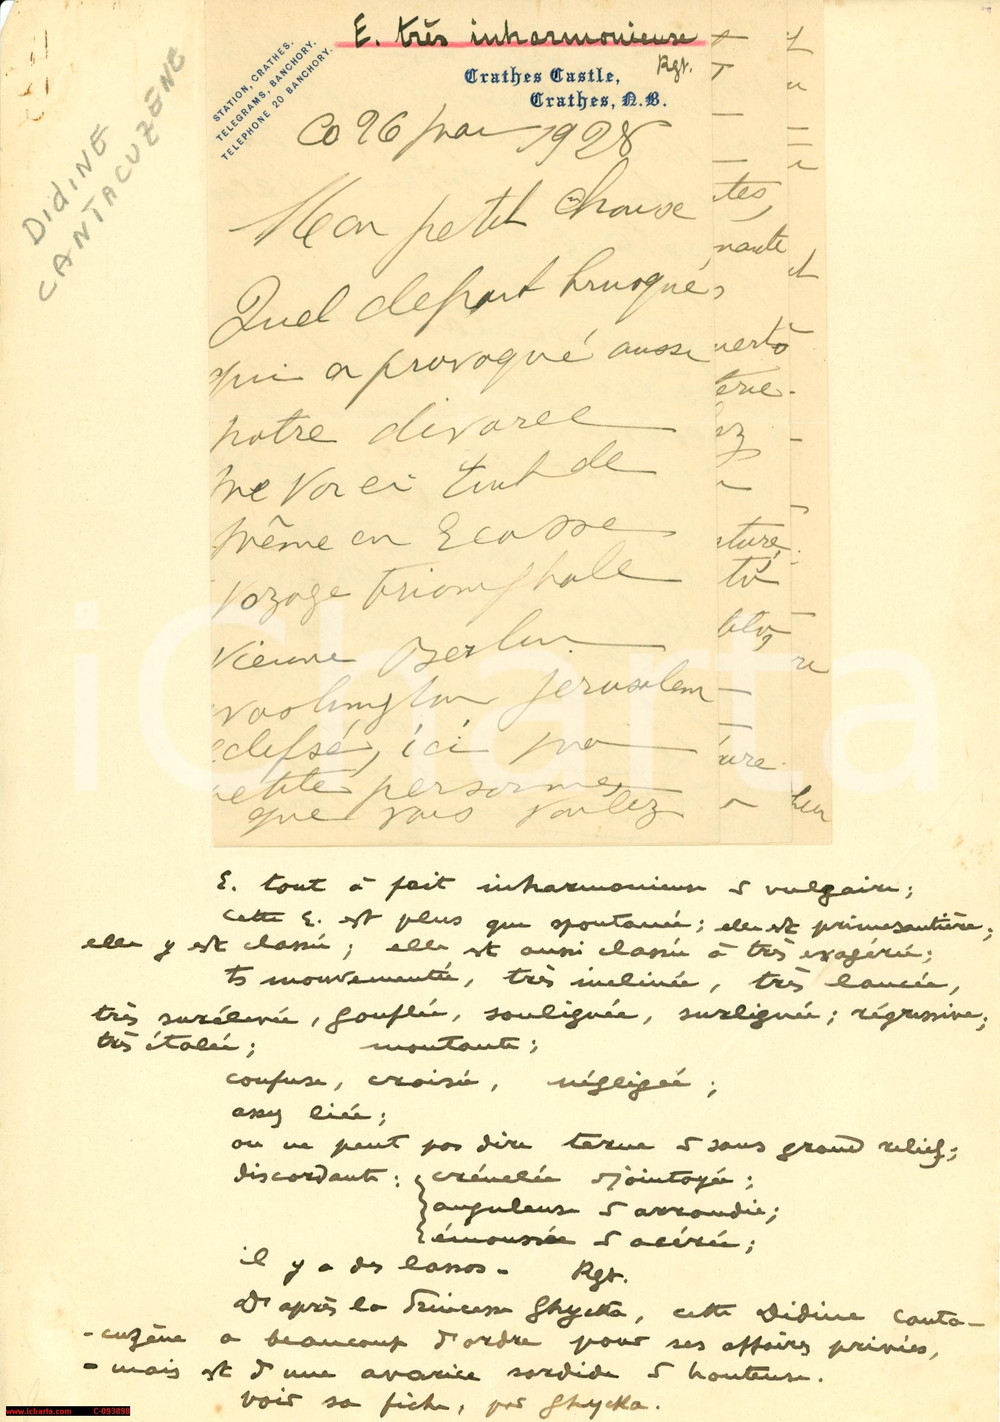 E. très inharmonieuse
Rgt.
STATION, CRATHES.
TELEGRAMS, BANCHORY.
TELEPHONE 20 BANCHORY.
Crathes Castle,
Crathes, N.B.
Didine
CANTACUZÈNE
Ce 26 mai 1928
Mon petit Chouse
Quel depart brusqué,
qui a provoqué aussi
notre divorce
me voici tout de
même en Ecosse
Voyage triomphale
Vienne Berlin
Washington Jerusalem
ici
petite personne,
que vous voulez
tes,
nante
verto
terie.
ez
cture,
ture.
E. tout à fait inharmonieuse & vulgaire;
Cette E. est plus que spontanée; elle est primesautière;
elle y est classée; elle est aussi classée à très exagérée;
ts mouvementée, très inclinée, très lancée,
très surélevée, gonflée, soulignée, surlignée; régressive;
très étalée; montante;
confuse, croisée, négligée;
assez liée;
on ne peut pas dire terne & sans grand relief;
discordante: crénelée & jointoyée;
anguleuse & arrondie;
émoussée & acérée;
il y a des lassos - Rgt.
D'après la Princesse Ghycka, cette Didine Canta-
-cuzène a beaucoup d'ordre pour ses affaires privées,
- mais est d'une avarice sordide & honteuse.
voir sa fiche, par Ghycka.
iCharta
www.icharta.com C-093898